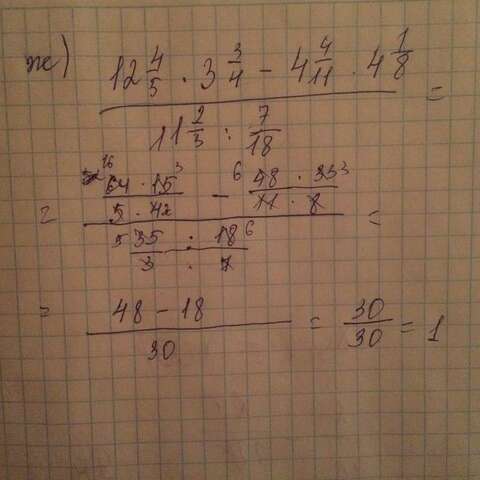 ж) 12 4/5 · 3 3/4 − 4 4/11 · 4 1/8
11 2/3 : 7/18 =
= 64 · 15 / 5 · 4 − 48 · 33 / 11 · 8
35 : 18 / 3 · 7 =
= 48 − 18 / 30 = 30/30 = 1